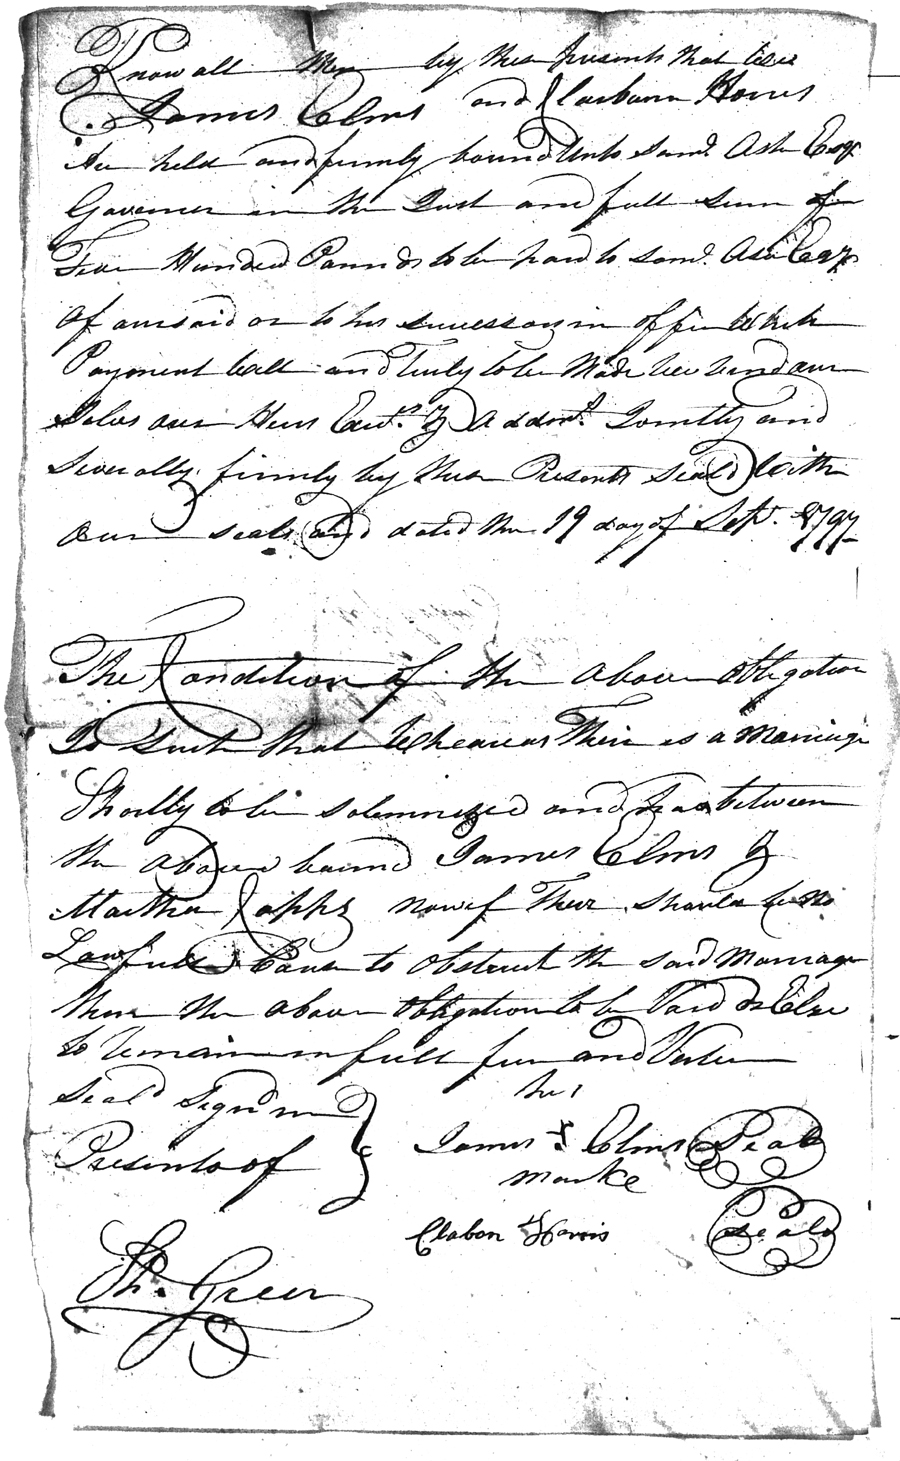 Know all Men by these presents that wee
James Elms and Clayborn Harris
Are held and firmly bound Unto Saml. Ash Esqr
Governer in the Just and full sum of
Five Hundred Pounds to be paid to Saml. Ash Esqr
Of aforsaid or to his successors in office Which
Payment well and Truly to be Made wee bind our
Selves our Heirs Exets. & Addmt. Jointly and
Severally firmly by these Presents seald with
our seals and dated the 19 day of Sept. 1797
The Condition of the above obligation
Is Such that Wheareas Their is a Marriage
Shortly to be solemnized and had between
the above bound James Elms &
Martha Capps now if Their should be no
Lawfull Cause to obstruct the said Marriage
then the above obligation to be Void or Else
to Remain in full force and Vertue
Seald Signd in
Presents of
his
James X Elms Seal
marke
Clabon Harris Seal
Th. Green